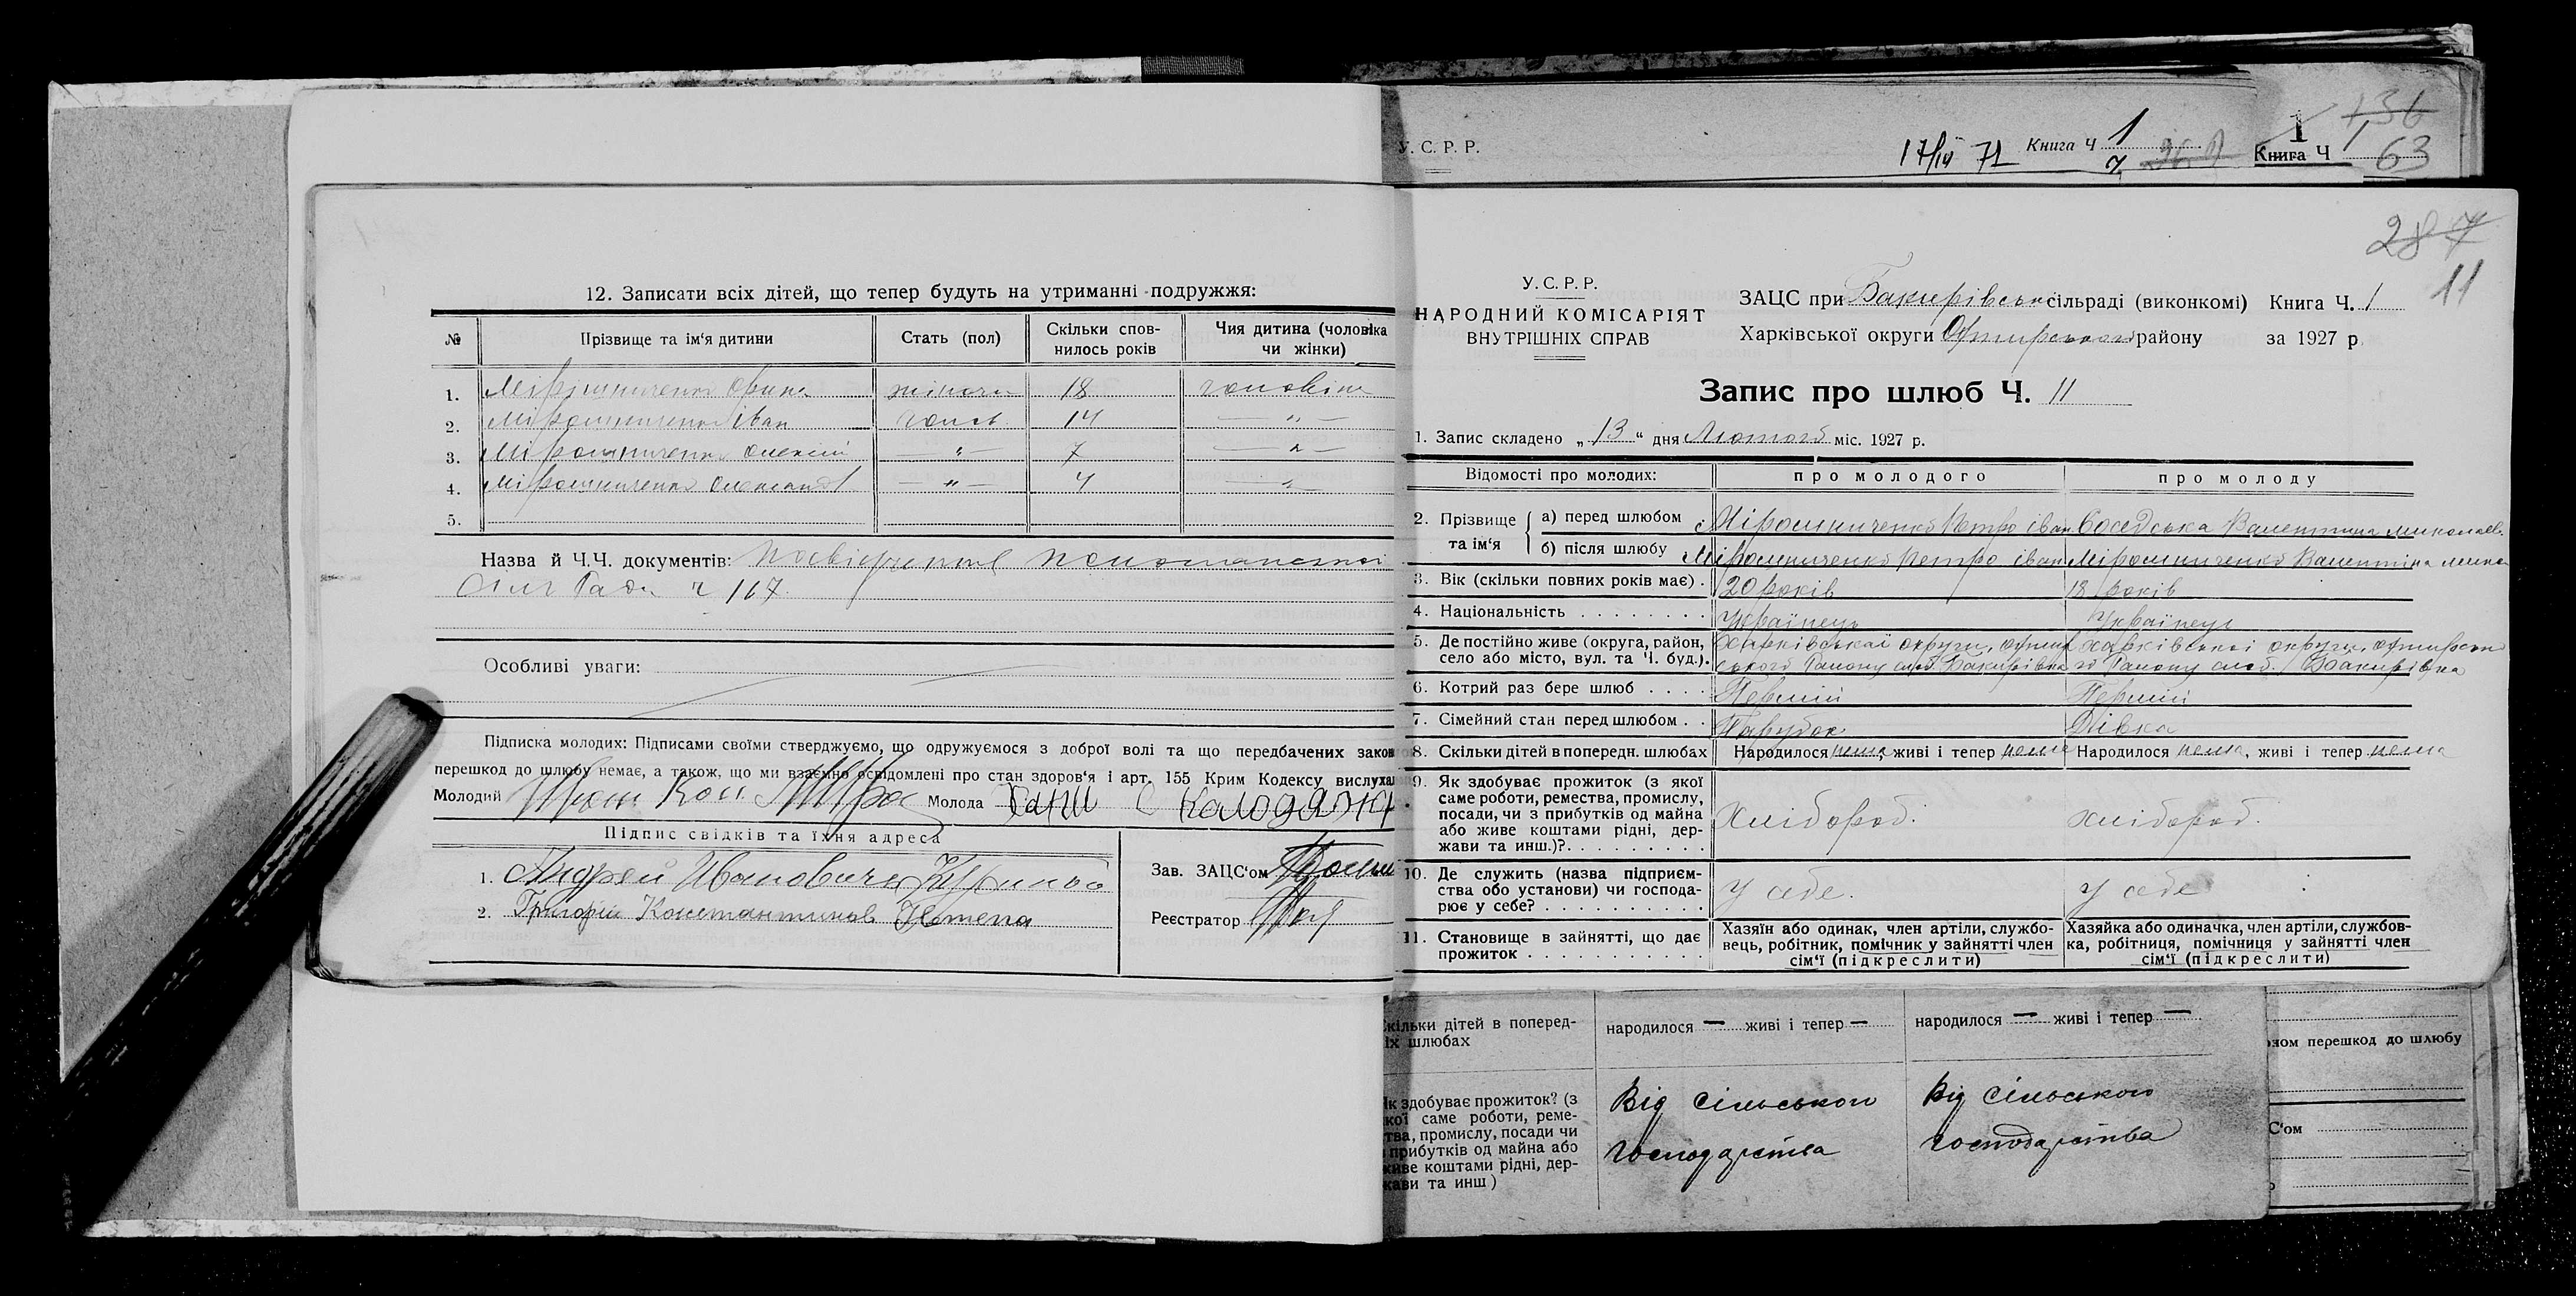 У. С. Р. Р.
17/IV 71 Книга Ч 1
1 136
Книга Ч 1 63
12. Записати всіх дітей, що тепер будуть на утриманні подружжя:
№ Прізвище та ім'я дитини Стать (пол) Скільки спов-нилось років Чия дитина (чоловіка чи жінки)
1. Мірошниченко Орина жіноча 18 чоловіка
2. Мірошниченко Іван чолов. 14 — „ —
3. Мірошниченко Олексій — „ — 7 — „ —
4. Мірошниченко Олександ — „ — 4 — „ —
5.
Назва й Ч.Ч. документів:
Сіль Ради ч 167
Особливі уваги:
Підписка молодих: Підписами своїми стверджуємо, що одружуємося з доброї волі та що передбачених закон
перешкод до шлюбу немає, а також, що ми взаємно освідомлені про стан здоров'я і арт. 155 Крим Кодексу вислухал
Молодий Молода
Підпис свідків та їхня адреса
1. Андрей Иванович
2. Григорій Константинов
Зав. ЗАЦС'ом
Реєстратор
287
11
У. С. Р. Р.
НАРОДНИЙ КОМІСАРІЯТ
ВНУТРІШНІХ СПРАВ
ЗАЦС при Бакирівські сільраді (виконкомі) Книга Ч. 1
Харківської округи Охтирського району за 1927 р.
Запис про шлюб Ч. 11
1. Запис складено „ 13 “ дня Лютого міс. 1927 р.
Відомості про молодих: про молодого про молоду
2. Прізвище та ім'я
а) перед шлюбом Мірошниченко Петро Іван Валентина Миколаєв.
б) після шлюбу Мірошниченко Петро Іван Мірошниченко Валентіна Мико
3. Вік (скільки повних років має) . 20 років 18 років
4. Національність . . . . . . . . Українець Українець
5. Де постійно живе (округа, район, село або місто, вул. та Ч. буд.). Харківської округи, Охтирського Району слоб. Бакирівка Харківської округи, Охтирського Району слоб. Бакирівка
6. Котрий раз бере шлюб . . . . Перший Перший
7. Сімейний стан перед шлюбом . . Парубок Дівка
8. Скільки дітей в попередн. шлюбах Народилося нема, живі і тепер нема Народилося нема, живі і тепер нема
9. Як здобуває прожиток (з якої саме роботи, ремества, промислу, посади, чи з прибутків од майна або живе коштами рідні, дер-жави та инш.)?. . . . . . . . . Хлібороб. Хлібороб.
10. Де служить (назва підприєм-ства обо установи) чи господа-рює у себе? . . . . . . . . . . У себе. У себе
11. Становище в зайнятті, що дає прожиток . . . . . . . . . . . Хазяїн або одинак, член артіли, службо-вець, робітник, помічник у зайнятті член сім'ї (підкреслити) Хазяйка або одиначка, член артіли, службов-ка, робітниця, помічниця у зайнятті член сім'ї (підкреслити)
кільки дітей в поперед-
іх шлюбах
народилося — живі і тепер —
народилося — живі і тепер —
Як здобуває прожиток? (з
кої саме роботи, реме-
тва, промислу, посади чи
прибутків од майна або
живе коштами рідні, дер-
жави та инш )
Від сільського
господарства
Від сільського
господарства
зом перешкод до шлюбу
С'ом